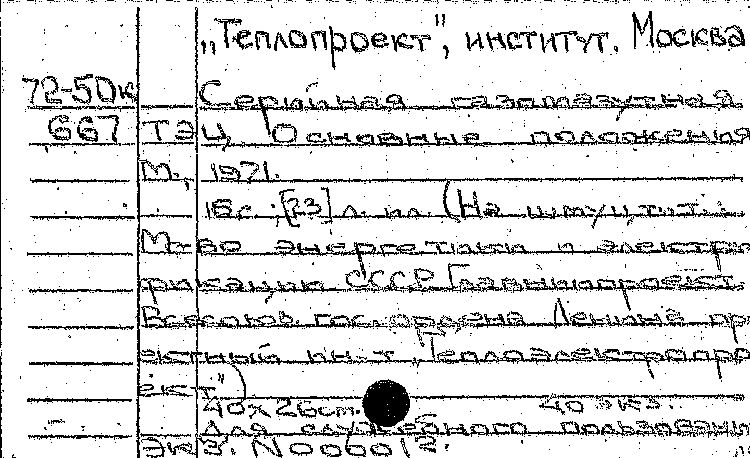 „Теплопроект", институт. Москва
72-50к Серийная газомазутная
667 ТЭЦ. Основные положения
М., 1971.
16с.; [23] л. ил. (На шмуцтит.:
М-во энергетики и электри
фикации СССР. Главниипроект.
Всесоюз. гос. ордена Ленина про
ектный ин-т „Теплоэлектропро
ект")
40х26см. 40 экз.
Для служебного пользования
Экз. N 000012.